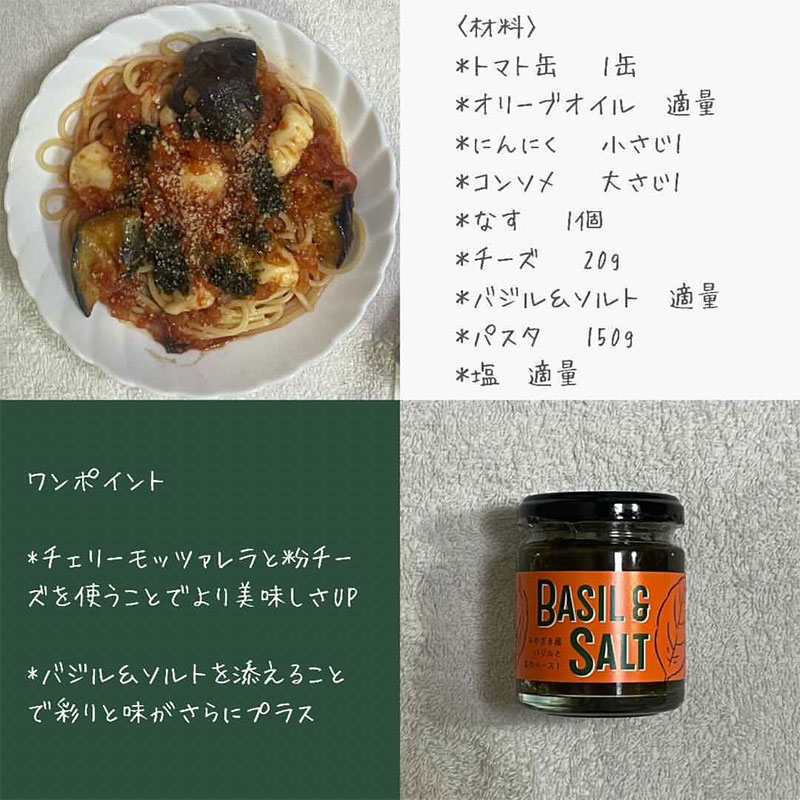 〈材料〉
*トマト缶 1缶
*オリーブオイル 適量
*にんにく 小さじ1
*コンソメ 大さじ1
*なす 1個
*チーズ 20g
*バジル&ソルト 適量
*パスタ 150g
*塩 適量
ワンポイント
*チェリーモッツァレラと粉チー
ズを使うことでより美味しさUP
*バジル&ソルトを添えること
で彩りと味がさらにプラス
BASIL &
SALT
みやざき産
バジルと
塩のペースト